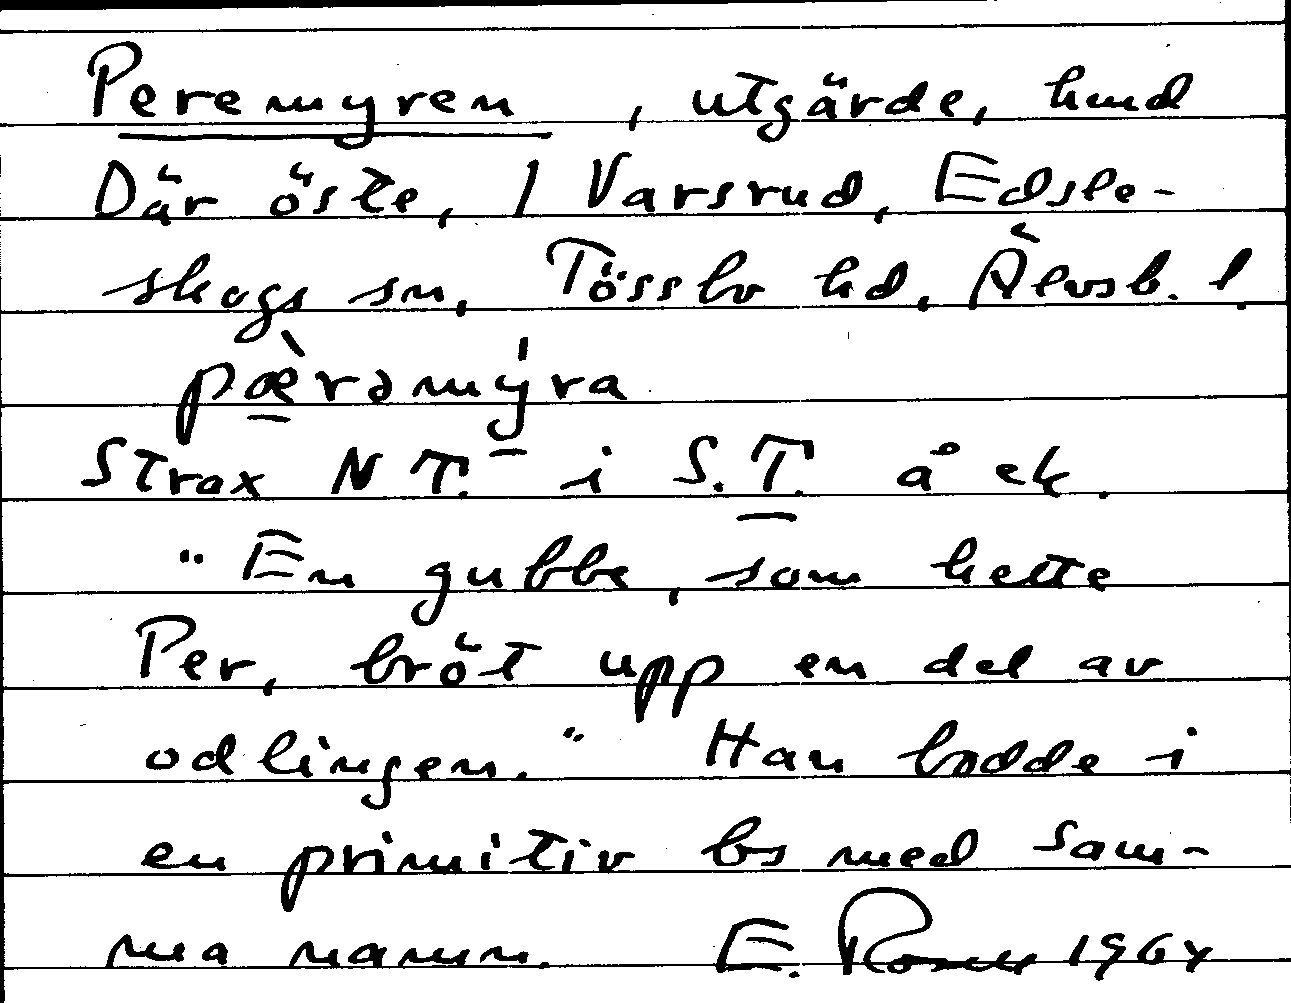 Peremyren, utgärde, und
Där öste, 1 Varsrud, Edsle-
skogs sn, Tössbo hd, Älvsb. l.
pæ̀rəmýra
Strax N T. i S.T. å ek.
"En gubbe, som hette
Per, bröt upp en del av
odlingen." Han bodde i
en primitiv bs med sam-
ma namn. E. 1964